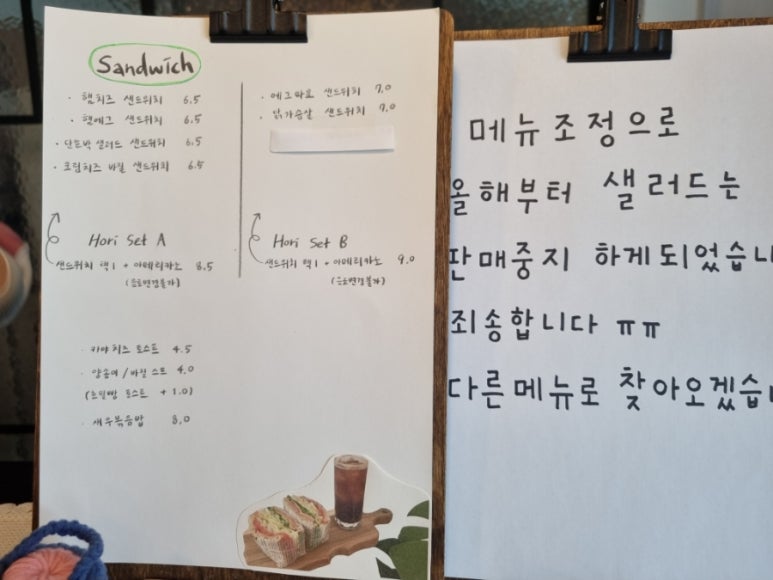 Sandwich
· 햄치즈 샌드위치 6.5
· 햄에그 샌드위치 6.5
· 단호박 샐러드 샌드위치 6.5
· 크림치즈 바질 샌드위치 6.5
· 에그마요 샌드위치 7.0
· 닭가슴살 샌드위치 7.0
Hori Set A
샌드위치 택1 + 아메리카노 8.5
(음료변경불가)
Hori Set B
샌드위치 택1 + 아메리카노 9.0
(음료변경불가)
· 카야치즈 토스트 4.5
· 앙금이 / 바질 스트 4.0
(호밀빵 토스트 + 1.0)
· 새우볶음밥 8.0
메뉴조정으로
올해부터 샐러드는
판매중지 하게되었습니
죄송합니다 ㅠㅠ
다른메뉴로 찾아오겠습